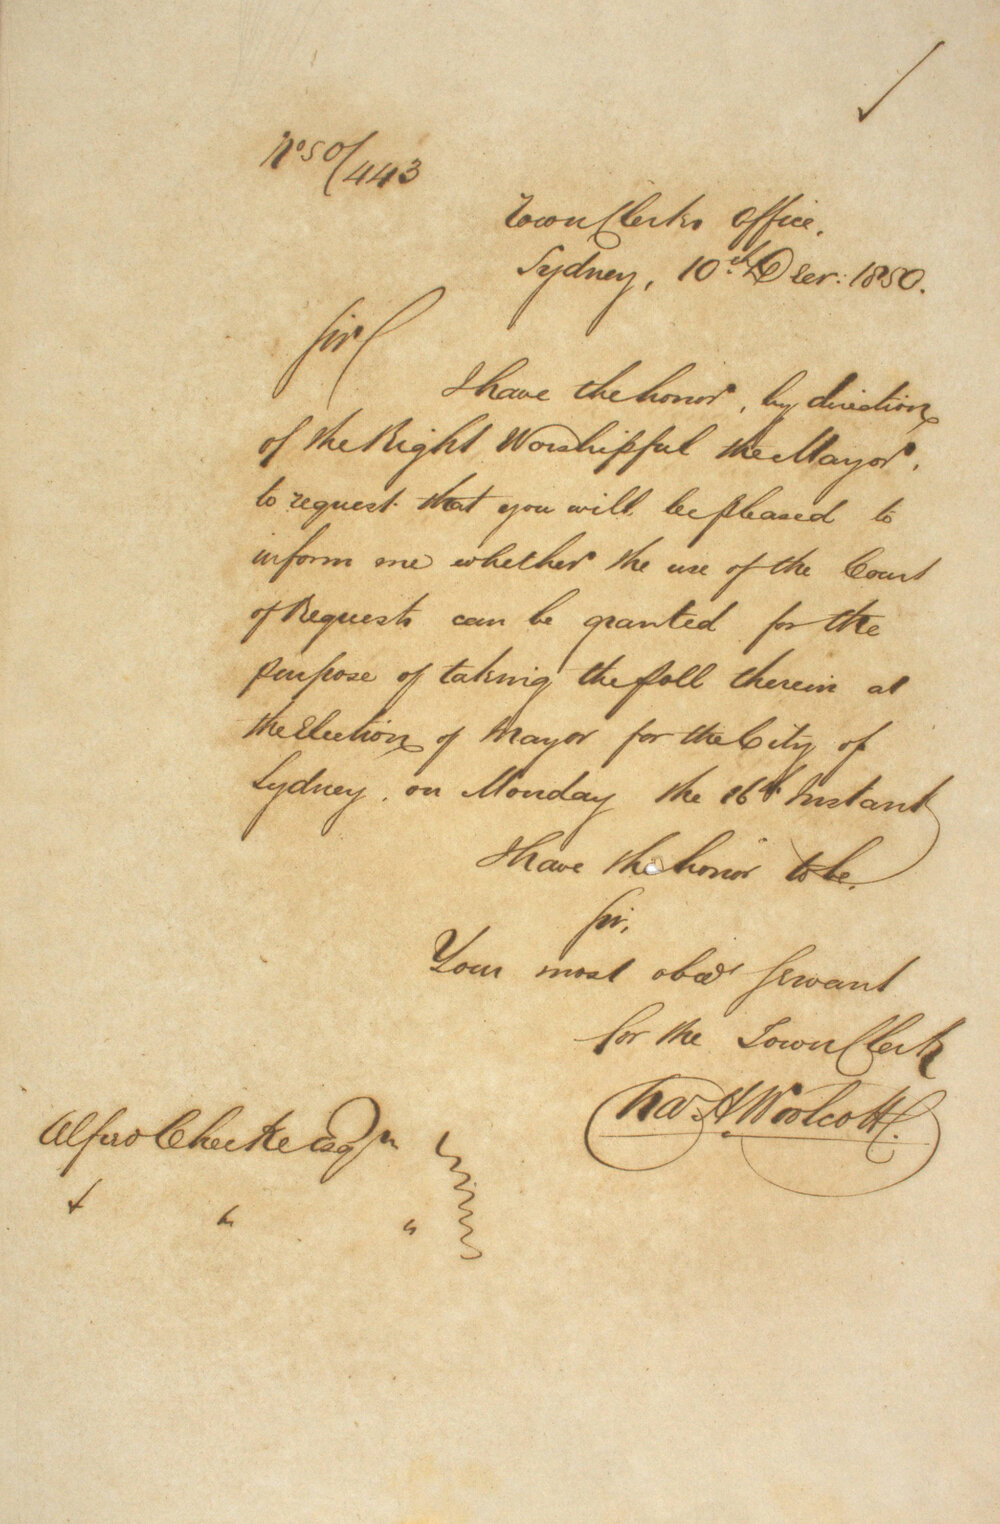 No 50/443
Town Clerks Office,
Sydney, 10th Decr: 1850.
Sir
I have the honor, by direction
of the Right Worshipful the Mayor,
to request that you will be pleased to
inform me whether the use of the Court
of Requests can be granted for the
purpose of taking the poll therein at
the Election of Mayor for the City of
Sydney, on Monday the 16th Instant
I have the honor to be,
Sir,
Your most obedt Servant
for the Town Clerk
Thos. H. Woolcott.
Alfred Cheeke Esqr